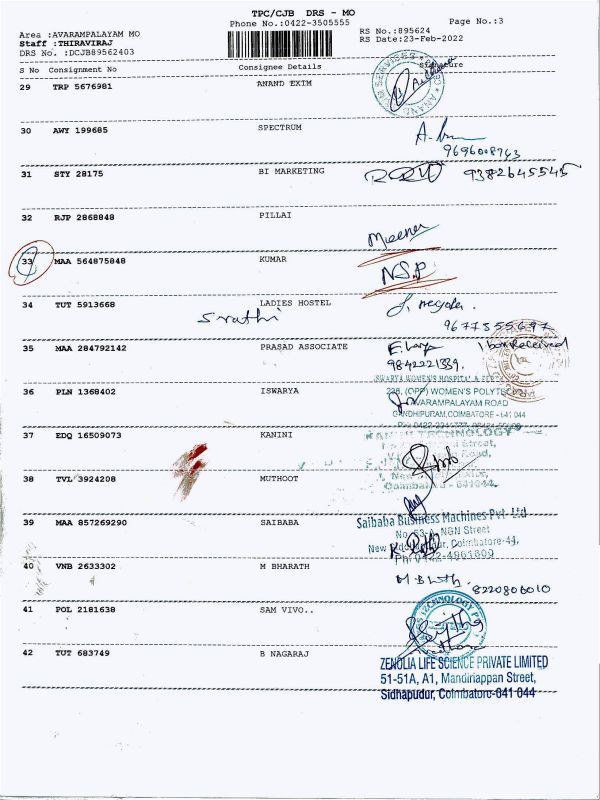 TPC/CJB DRS - MO
Phone No.:0422-3505555
Page No.:3
Area :AVARAMPALAYAM MO
Staff :THIRAVIRAJ
DRS No. :DCJB89562403
RS No.:895624
RS Date:23-Feb-2022
S No Consignment No Consignee Details Signature
29 TRP 5676981 ANAND EXIM
30 AWY 199685 SPECTRUM
9696008763
31 STY 28175 BI MARKETING 9382645545
32 RJP 2868848 PILLAI
Meena
33 MAA 564875848 KUMAR
N.S.P
34 TUT 5913668 LADIES HOSTEL
9677555697
35 MAA 284792142 PRASAD ASSOCIATE 1 box Received
9842221339.
36 PLN 1368402 ISWARYA
(OPP) WOMEN'S
AVARAMPALAYAM ROAD
GANDHIPURAM, COIMBATORE - 641 044
37 EDQ 16509073 KANINI
TECHNOLOGY
Street,
Road,
38 TVL 3924208 MUTHOOT
Coimbatore - 641044.
39 MAA 857269290 SAIBABA
Saibaba Business Machines Pvt. Ltd
NGN Street
Coimbatore-44,
40 VNB 2633302 M BHARATH
8220806010
41 POL 2181638 SAM VIVO..
42 TUT 683749 B NAGARAJ
ZENOLIA LIFE SCIENCE PRIVATE LIMITED
51-51A, A1, Mandiriappan Street,
Sidhapudur, Coimbatore-641 044